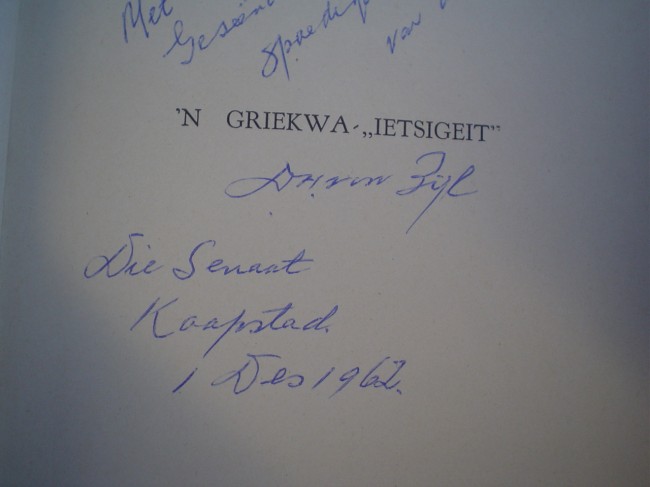 Met
Geseën
spoedig
van
'N GRIEKWA-„IETSIGEIT"
D.H. van Zyl
Die Senaat
Kaapstad.
1 Des 1962.